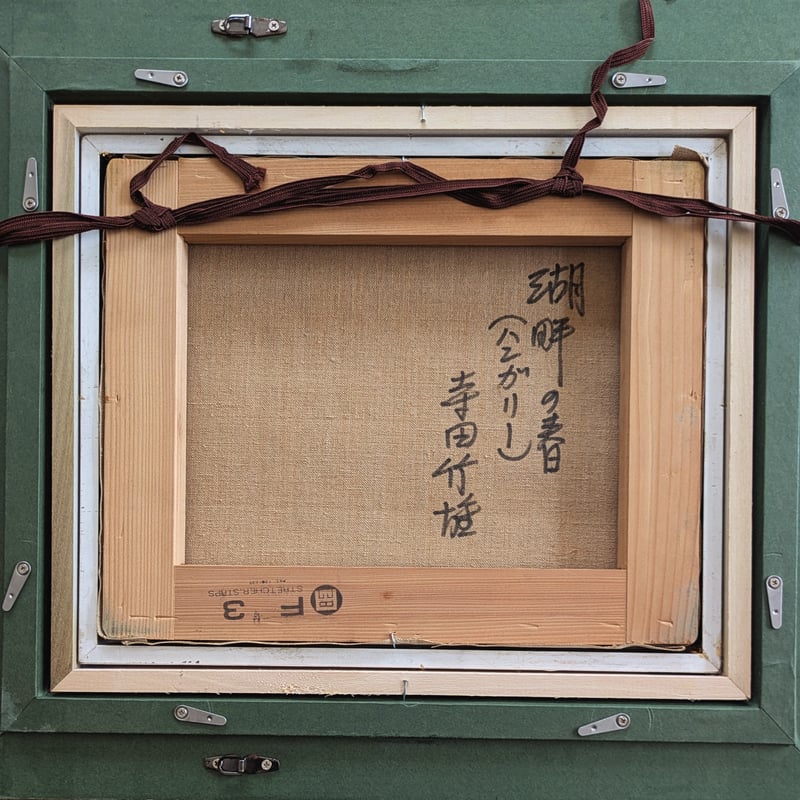 湖畔の春
(ハンガリー)
寺田竹
F 3
STRETCHER.STRIPS